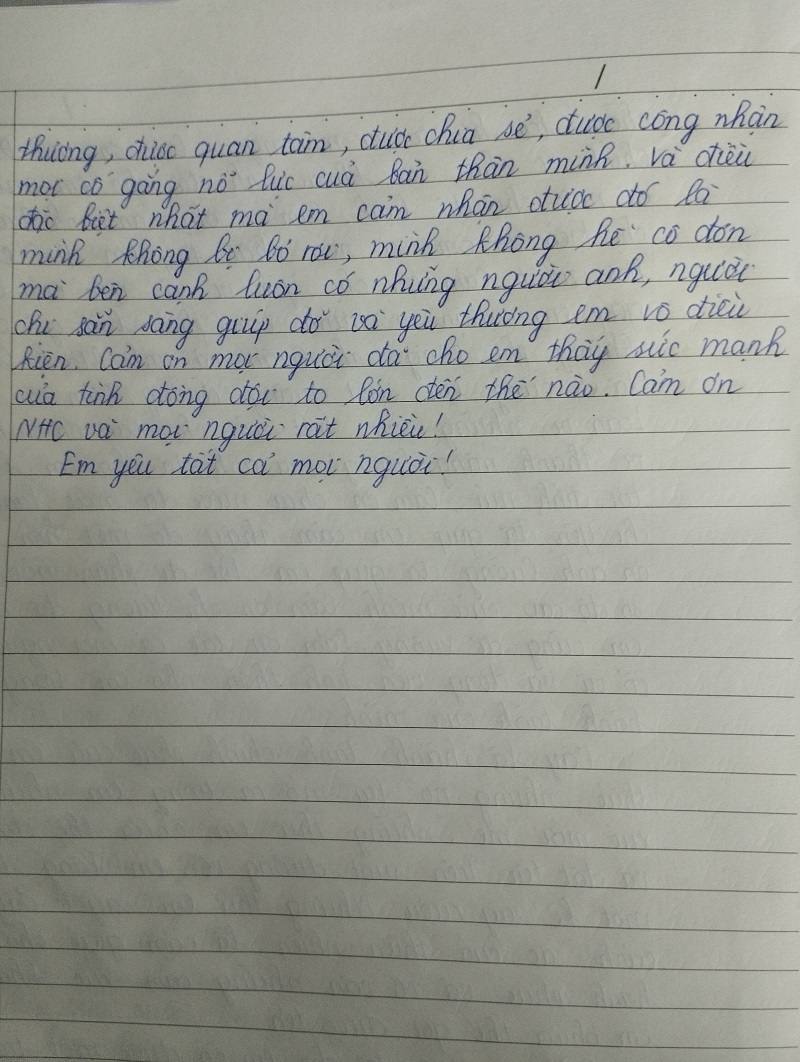 thương, được quan tâm, được chia sẻ, được công nhận
mọi cố gắng nỗ lực của bản thân mình. Và điều
đặc biệt nhất mà em cảm nhận được đó là
mình không bị bỏ rơi, mình không hề cô đơn
mà bên cạnh luôn có những người anh, người
chị sẵn sàng giúp đỡ và yêu thương em vô điều
kiện. Cảm ơn mọi người đã cho em thấy sức mạnh
của tình đồng đội to lớn đến thế nào. Cảm ơn
NHC và mọi người rất nhiều!
Em yêu tất cả mọi người!